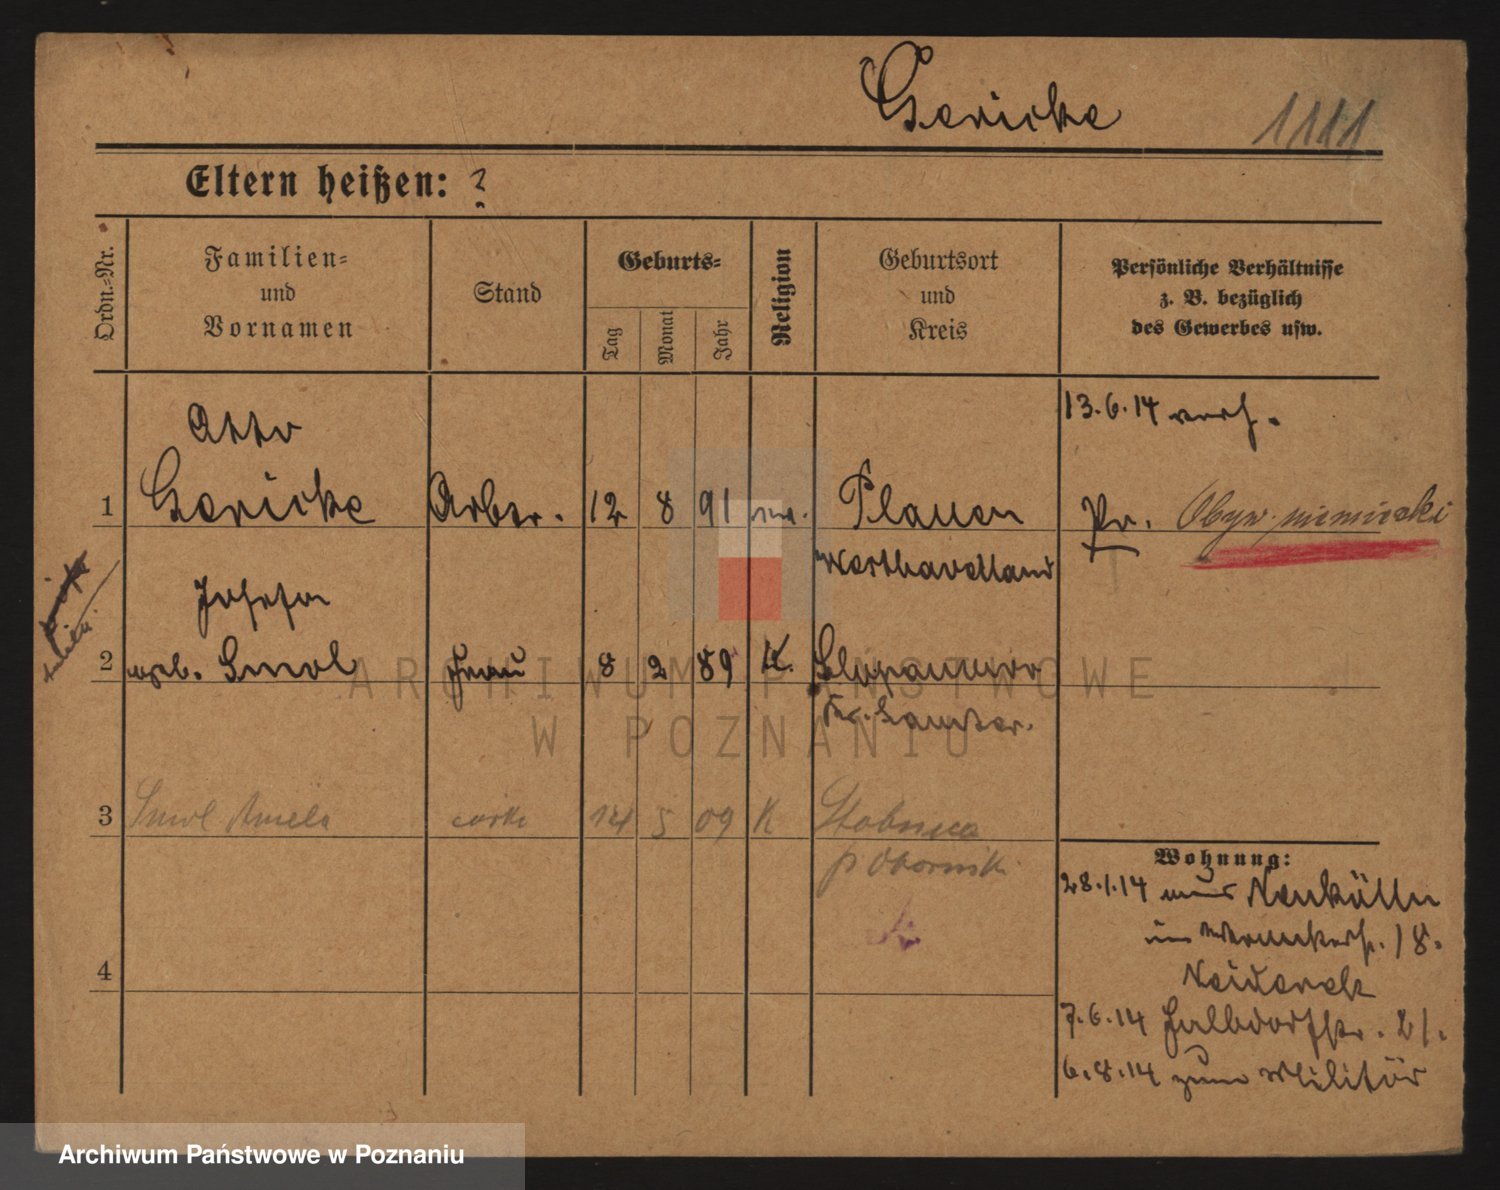 Gericke 1111
Eltern heißen: ?
Ordn.-Nr.
Familien=
und
Vornamen
Stand
Geburts=
Tag
Monat
Jahr
Religion
Geburtsort
und
Kreis
Persönliche Verhältnisse
z. B. bezüglich
des Gewerbes usw.
13.6.14 verh.
Otto
1 Gericke Arbeit. 12 8 91 ev. Plauen Pr. Obyw. niemiecki
Westhavelland
Josefa
2 geb. Smol Frau 8 2 89 K.
Kr. Samter.
3 Smol Aniela córka 14 5 09 K Stobnica
p Oborniki
4
Wohnung:
28.1.14 aus Neukölln
18.
7.6.14 Halbdorfstr. 21.
6.8.14 zum Militär
ARCHIWUM PAŃSTWOWE
W POZNANIU
Archiwum Państwowe w Poznaniu